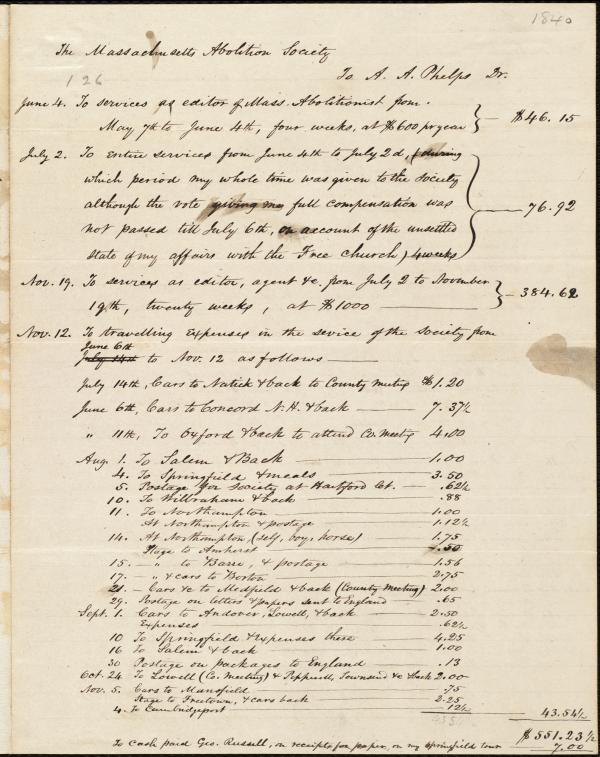 1840
The Massachusetts Abolition Society
126
To A. A. Phelps Dr.
June 4. To services as editor of Mass. Abolitionist from
May 7th to June 4th, four weeks, at $600 pr year — $46.15
July 2. To entire services from June 4th to July 2d, (during
which period my whole time was given to the Society
although the vote giving me full compensation was
not passed till July 6th, on account of the unsettled — 76.92
state of my affairs with the Free Church) 4 weeks
Nov. 19. To services as editor, agent &c. from July 2 to November
19th, twenty weeks, at $1000 — 384.62
Nov. 12. To travelling Expenses in the sevice of the Society from
June 6th
July 14th to Nov. 12 as follows —
July 14th, Cars to Natick & back to County Meeting $1.20
June 6th, Cars to Concord N. H. & back — 7.37½
" 11th, To Oxford & back to attend Co. Meeting 4.00
Aug. 1. To Salem & Back — 1.00
4. To Springfield & meals — 3.50
5. Postage for Society at Hartford Ct. — .62½
10. To Wilbraham & back — .88
11. To Northampton — 1.00
At Northampton & postage — 1.12½
14. At Northampton, (self, boy, horse) 1.75
Stage to Amherst — .50
15. — " to Barre, & postage — 1.56
17. — " & cars to Boston — 2.75
21. — Cars &c to Medfield & back (County Meeting) 2.00
29. Postage on letters & papers sent to England — .65
Sept. 1. Cars to Andover, Lowell, & back — 2.50
Expenses — .62½
10 To Springfield & expenses there — 4.25
16 To Salem & back — 1.00
30 Postage on packages to England — .13
Oct. 24. To Lowell (Co. Meeting) & Pepperell, Townsend &c & back 2.00
Nov. 5. Cars to Mansfield — .75
Stage to Freetown, & cars back — 2.25
4. To Cambridgeport — 12½
43.54½
$551.23½
To cash paid Geo. Russell, on receipts for paper, on my Springfield tour — 7.00